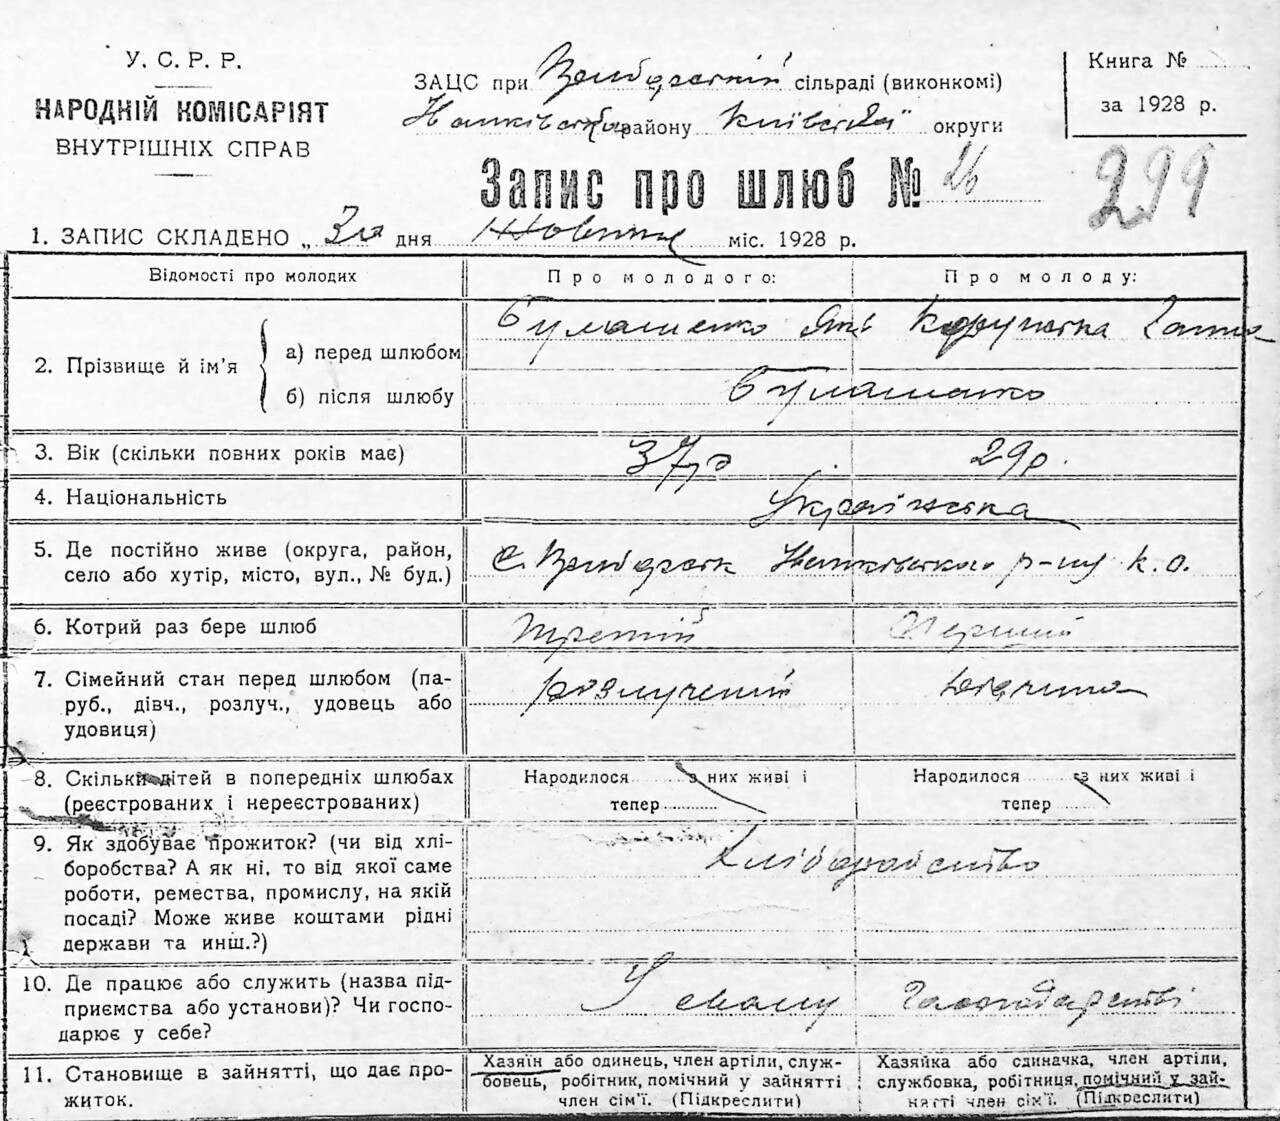 У. С. Р. Р.
НАРОДНІЙ КОМІСАРІЯТ
ВНУТРІШНІХ СПРАВ
ЗАЦС при сільраді (виконкомі)
району Київської округи
Книга №
за 1928 р.
Запис про шлюб № 26
299
1. ЗАПИС СКЛАДЕНО „ 3го дня Жовтня міс. 1928 р.
Відомості про молодих
Про молодого:
Про молоду:
2. Прізвище й ім'я
а) перед шлюбом
б) після шлюбу
Ганна
3. Вік (скільки повних років має)
37р
29р.
4. Національність
Українська
5. Де постійно живе (округа, район,
село або хутір, місто, вул., № буд.)
с. р-ну К.О.
6. Котрий раз бере шлюб
третій
Перший
7. Сімейний стан перед шлюбом (па-
руб., дівч., розлуч., удовець або
удовиця)
розлучений
дівчина
8. Скільки дітей в попередніх шлюбах
(реєстрованих і нереєстрованих)
Народилося з них живі і
тепер
Народилося з них живі і
тепер
9. Як здобуває прожиток? (чи від хлі-
боробства? А як ні, то від якої саме
роботи, ремества, промислу, на якій
посаді? Може живе коштами рідні
держави та инш.?)
10. Де працює або служить (назва під-
приємства або установи)? Чи госпо-
дарює у себе?
У свому господарстві
11. Становище в зайнятті, що дає про-
житок.
Хазяїн або одинець, член артіли, служ-
бовець, робітник, помічний у зайнятті
член сім'ї. (Підкреслити)
Хазяйка або єдиначка, член артіли,
службовка, робітниця, помічний у зай-
нятті член сім'ї. (Підкреслити)